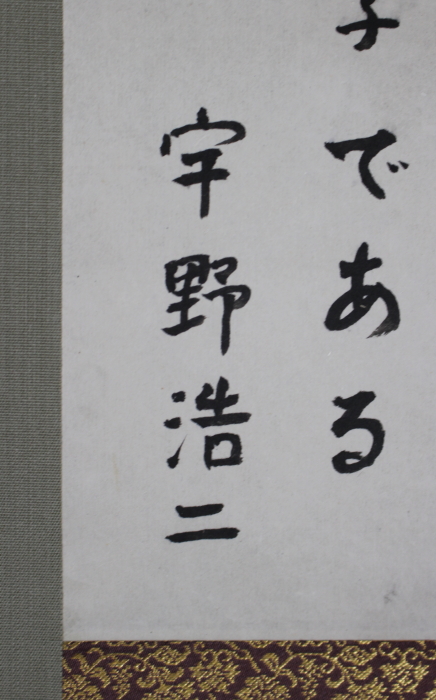 子である
宇野浩二